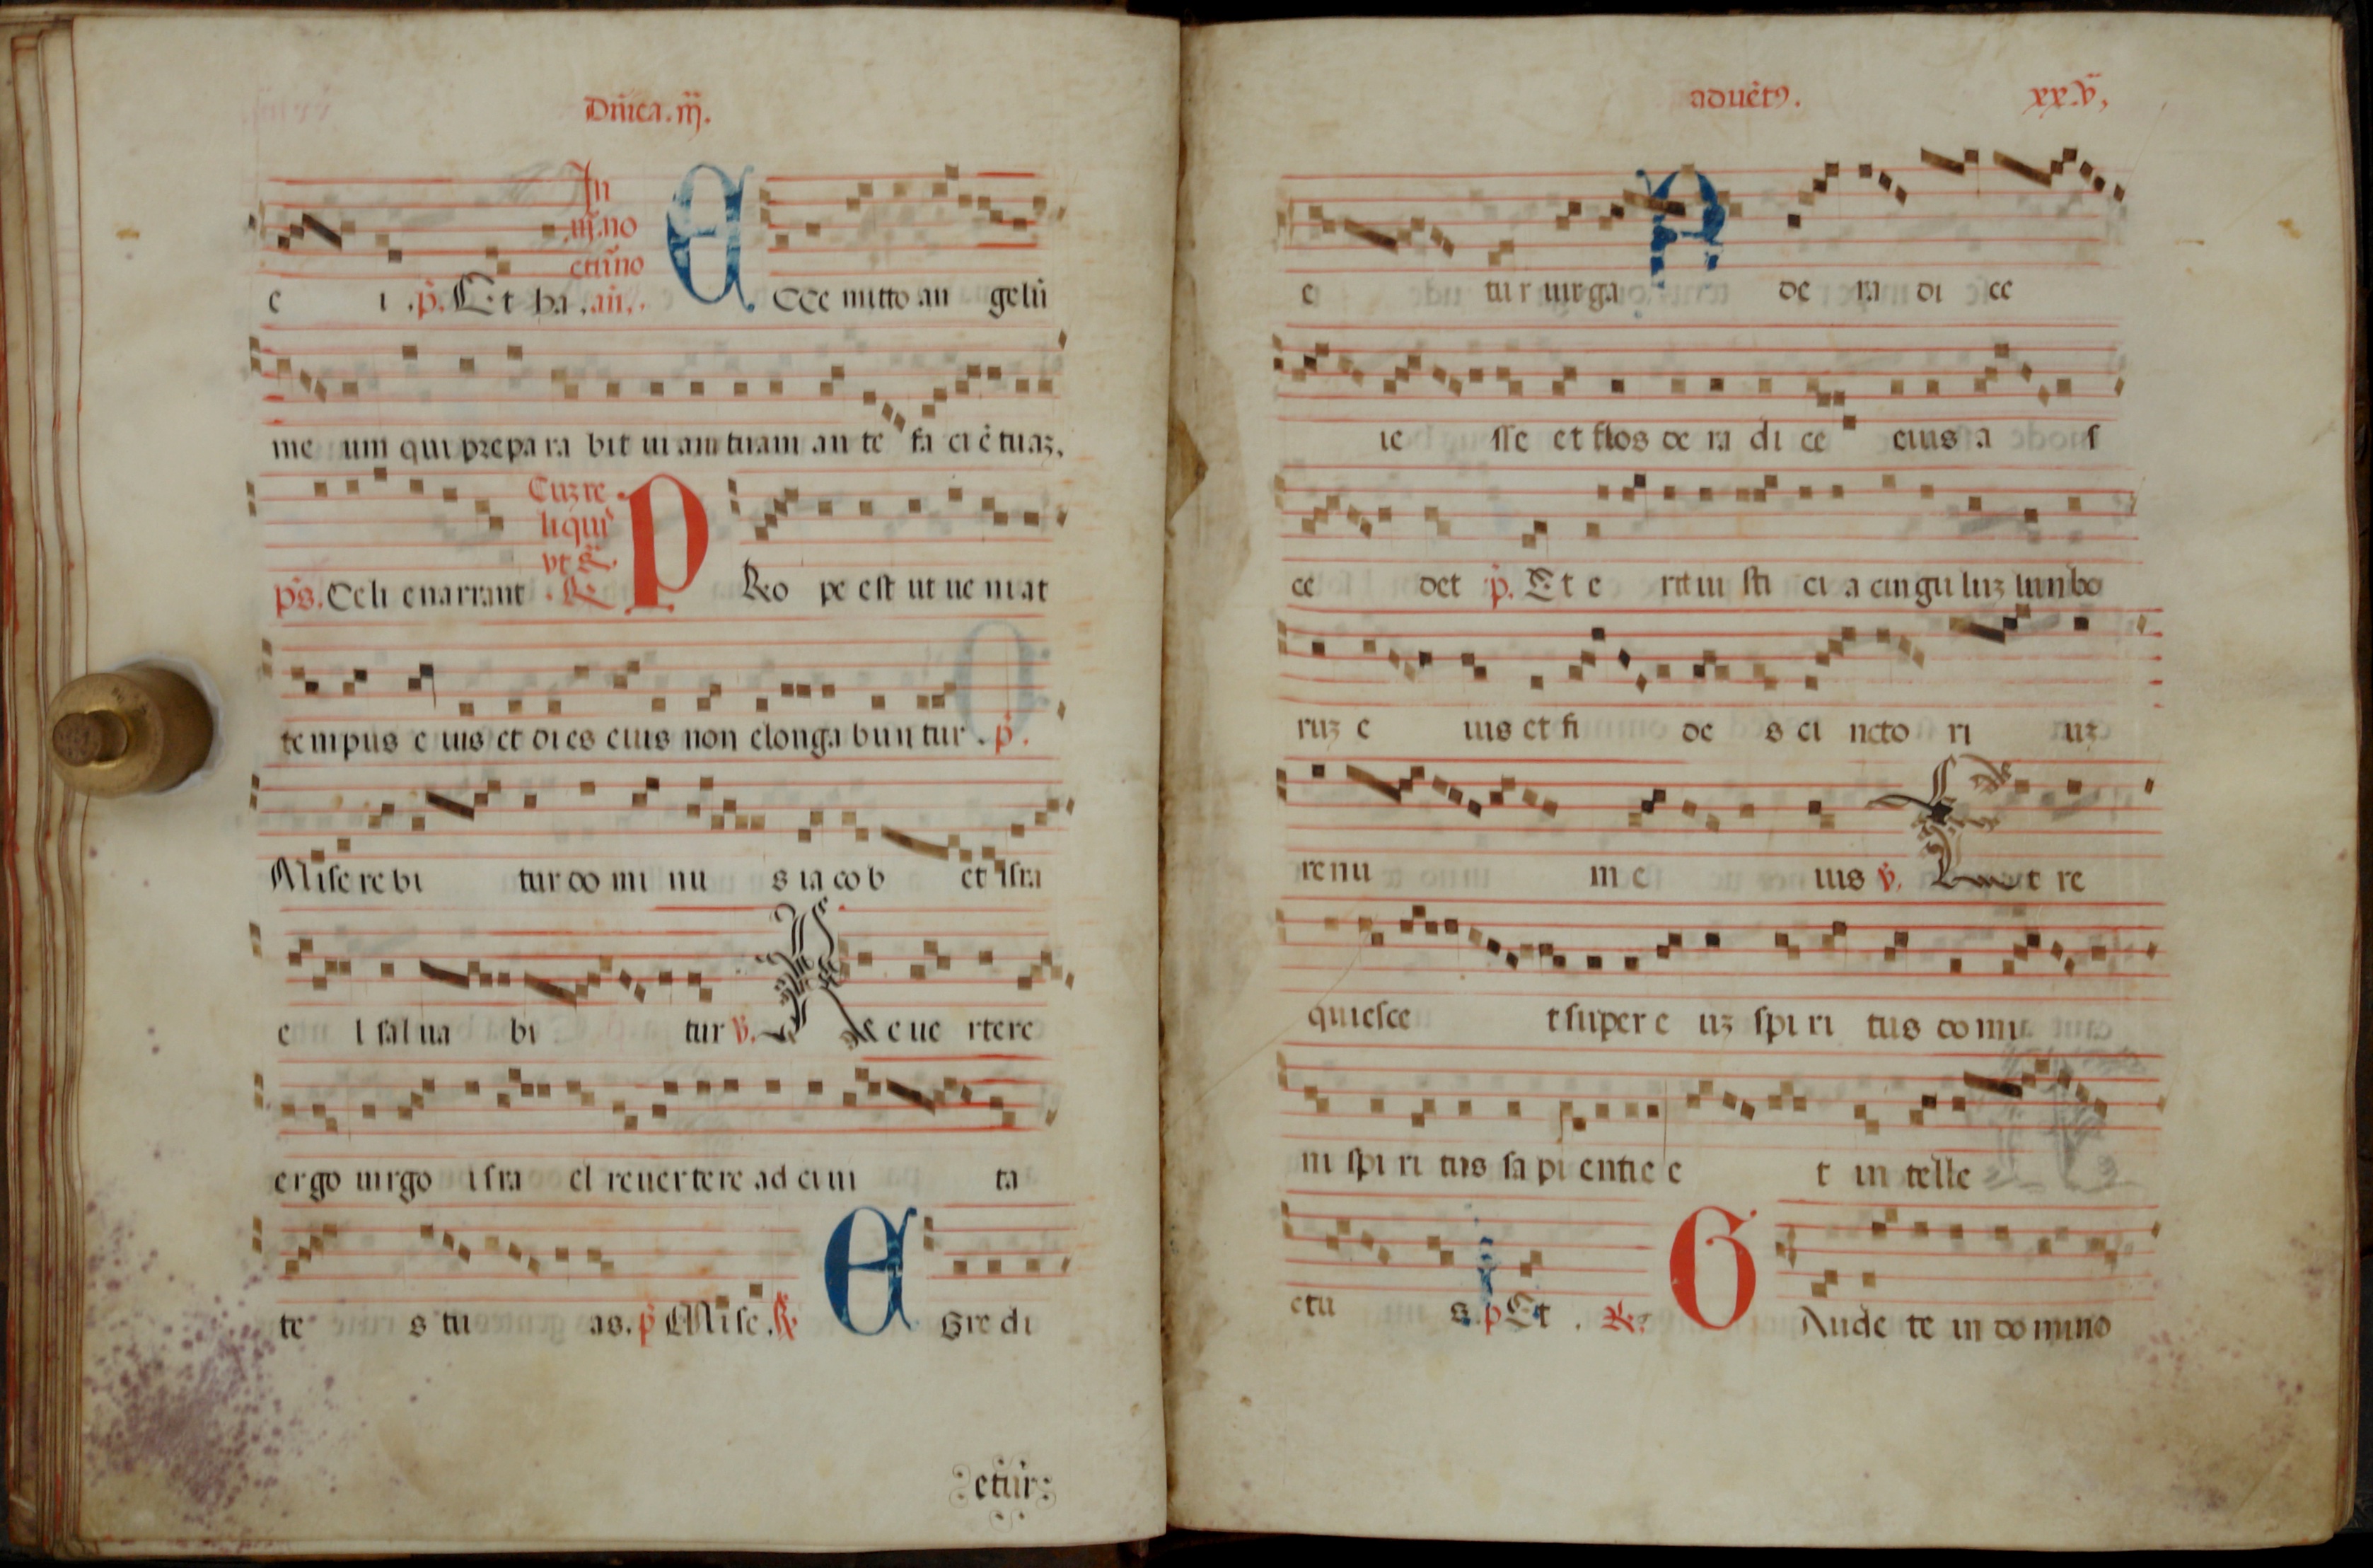 Dñica.iij.
In
iij.no
cturno
e i .p̃. Et ba .añ.
ECce mitto an gelū
me um qui prepa ra bit ui am tuam an te fa ci ē tuaʒ.
Cuʒ re
liquis
ut
ps. Celi enarrant . ℟.
PRo pe est ut ue ni at
tempus e ius et di es eius non elonga bun tur . p̃.
Mise re bi tur do mi nu s ia co b et isra
e l sal ua bi tur ℣. Re ue rtere
ergo uirgo isra el reuertere ad ciui ta
te s tu as. p̃ Mise. ℟.
EGre di
etur
aduēt9. xx.v,
e tur uirga de ra di ce
ie sse et flos de ra di ce eius a s
ce det p̃. Et e rit iu sti ci a cingu luʒ lumbo
ruʒ e ius et fi de s ci ncto ri uʒ
re nu m e ius ℣. Et re
quiesce t super e uʒ spi ri tus do mi
ni spi ri tus sa pi entie e t in telle
ctu s. p̃ Et . ℟.
GAude te in do mino